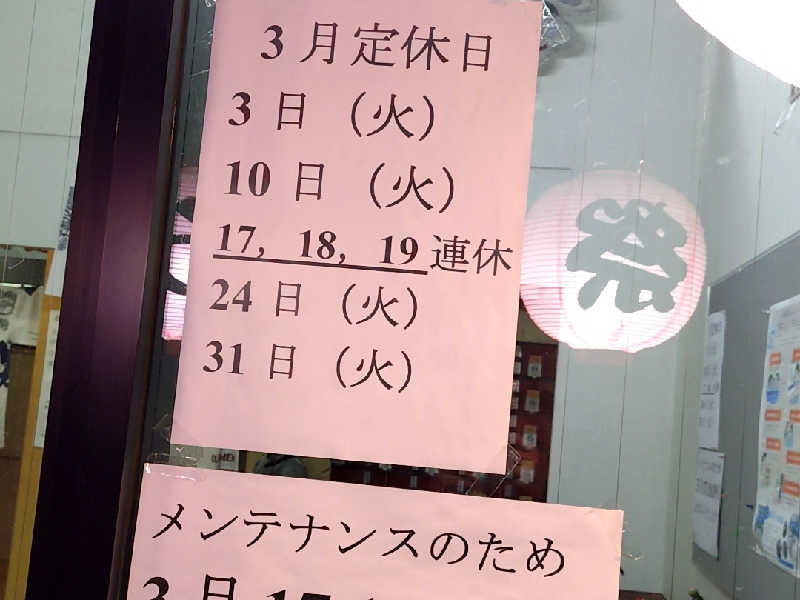 3月定休日
3日（火）
10日（火）
17，18，19連休
24日（火）
31日（火）
メンテナンスのため
祭